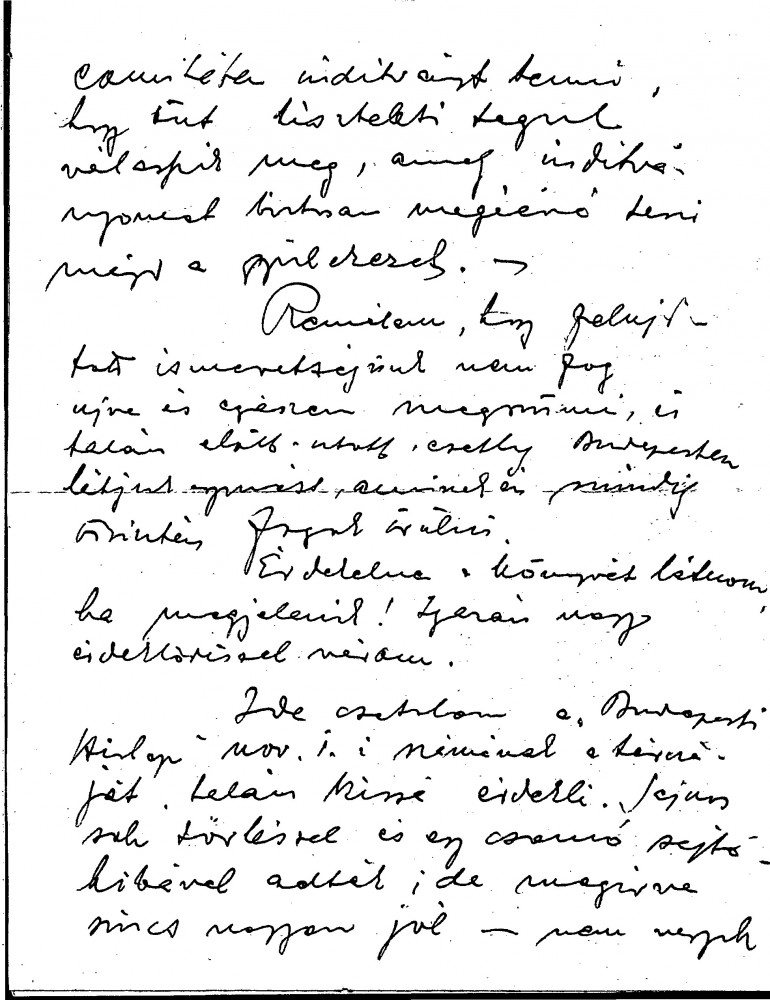 comitéten inditványt tenni,
hogy Önt tiszteleti tagul
válasszák meg, amely inditvá-
nyomat biztosan magáévá teszi
majd a gyülekezet. —
Remélem, hogy felují-
tott ismeretségünk nem fog
ujra és egészen megszünni, és
talán előbb-utóbb, esetleg Budapesten
látjuk egymást, aminek én mindig
őszintén fogok örülni.
Érdekelne a könyvét látnom,
ha megjelenik! Igazán nagy
érdeklődéssel várom.
Ide csatolom a „Budapesti
Hirlap" nov. 1. i számának a tárcá-
ját, talán kissé érdekli. Sajnos
sok törléssel és egy csomó sajtó-
hibával adták; de megirva
sincs nagyon jól — nem vagyok